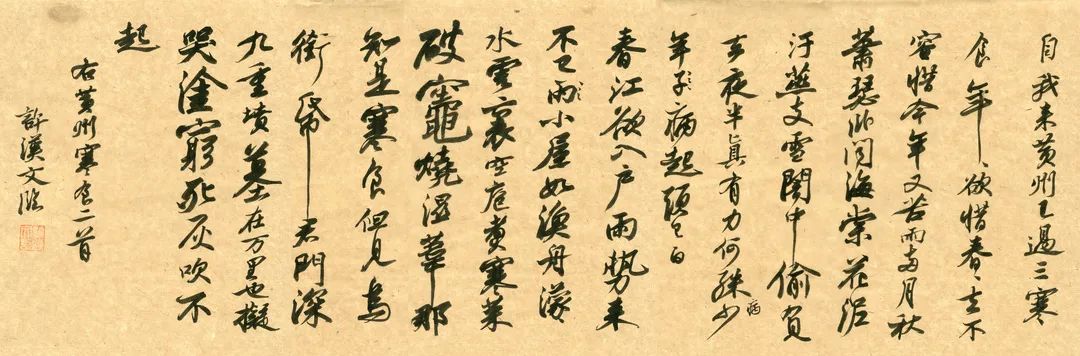 自我来黄州已過三寒
食年〻欲惜春〻去不
容惜今年又苦雨兩月秋
蕭瑟卧聞海棠花泥
汙燕支雪闇中偷負
去夜半真有力何殊少
病
年子病起頭已白
春江欲入戶雨勢来
不已雨小屋如漁舟濛
水雲裏空庖煮寒菜
破竈燒濕葦那
知是寒食但見烏
銜帋君門深
九重墳墓在万里也擬
哭塗窮死灰吹不
起
右黄州寒食二首
許漢文臨